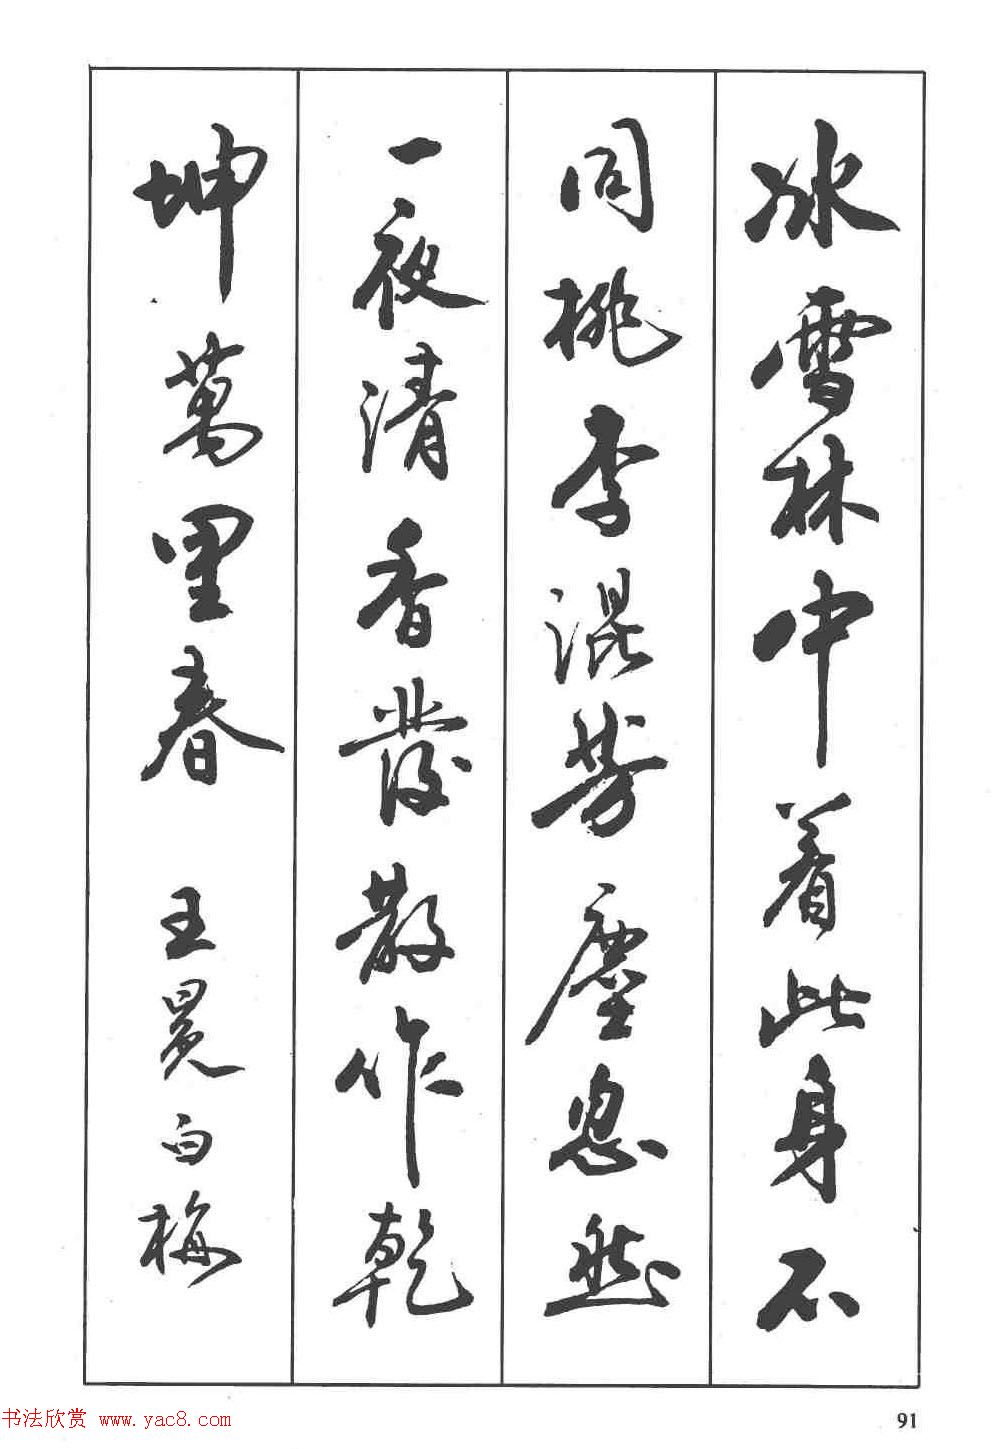 冰雪林中着此身不
同桃李混芳塵忽然
一夜清香發散作乾
坤萬里春 王冕白梅
书法欣赏 www.yac8.com
91